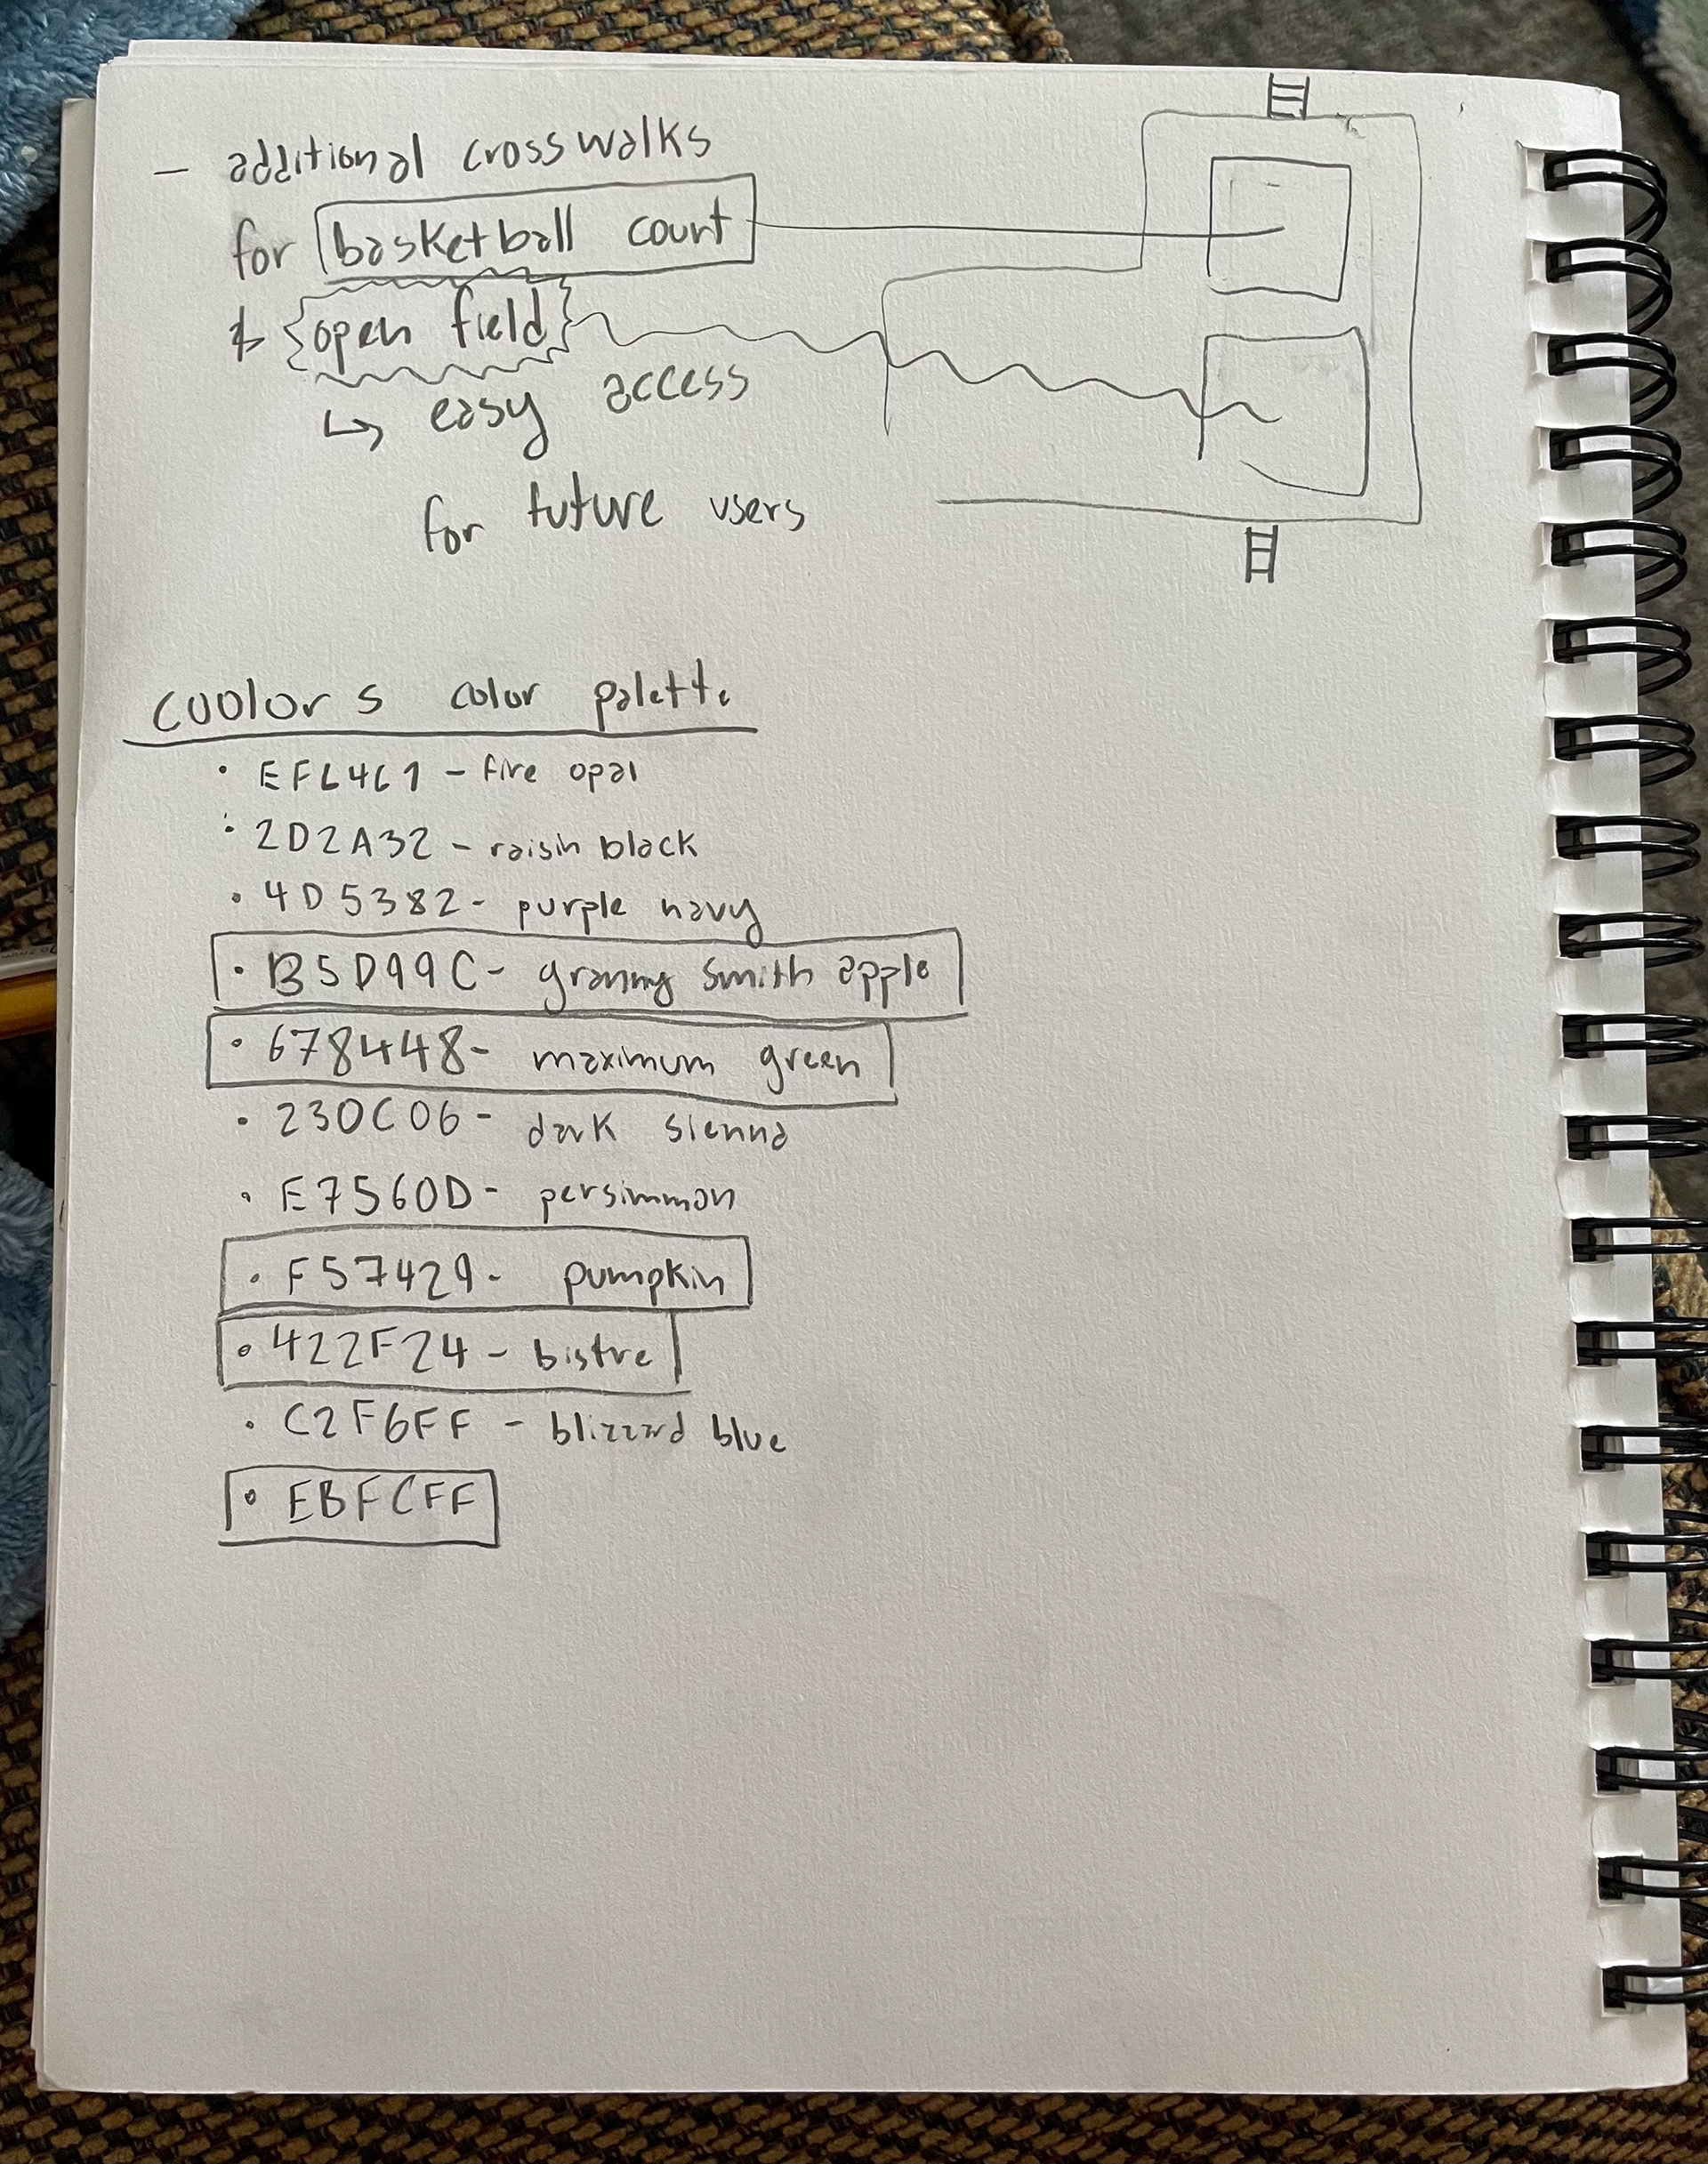 - additional crosswalks
for basketball court
& open field
↳ easy access
for future users
coolors color palette
• EF6461 - fire opal
• 2D2A32 - raisin black
• 4D5382 - purple navy
• B5D99C - granny smith apple
• 678448 - maximum green
• 230C06 - dark sienna
• E7560D - persimmon
• F57429 - pumpkin
• 422F24 - bistre
• C2F6FF - blizzard blue
• EBFCFF